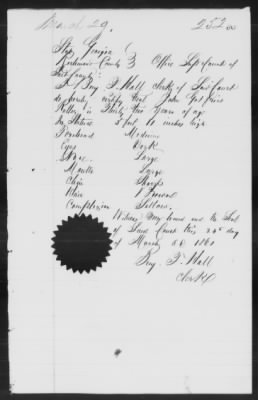 March 29.
State Georgia
Richmond County } Office Supr Court of
said County:
I Benj. F. Hall Clerk of said Court
do hereby certify that John
is Thirty two years of age
In Stature 5 feet 10 inches high
Forehead Medium
Eyes Dark
Nose Large
Mouth Large
Chin Sharp
Hair Brown
Complexion Sallow
Witness my hand and the Seal
of said Court this day
of March AD 1860
Benj. F. Hall
Clerk